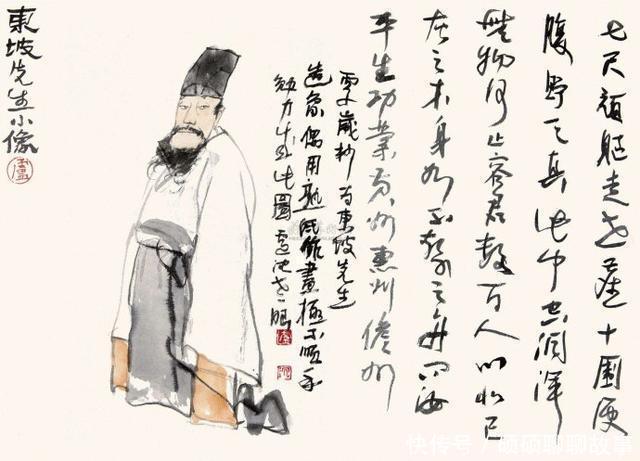 七尺頑軀走世塵十圍便
腹貯天真此中空洞渾
無物何止容君數百人心似已
灰之木身如不繫之舟問汝
平生功業黄州惠州儋州
歲杪为東坡先生
造象偶用熟紙作畫極不順手
勉力成此圖
東坡先生小像
快传号/硕硕聊聊故事